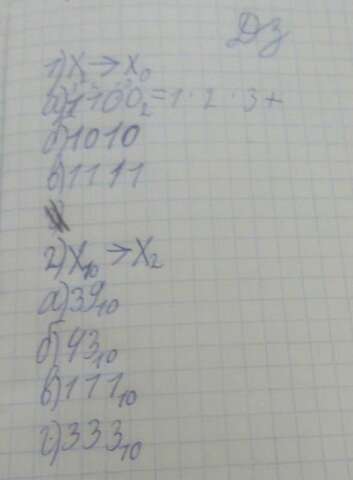 ДЗ
1) X₂ → X₁₀
а) 1100₂ = 1 · 2 · 3 +
б) 1010
в) 1111
2) X₁₀ → X₂
а) 39₁₀
б) 93₁₀
в) 111₁₀
г) 333₁₀